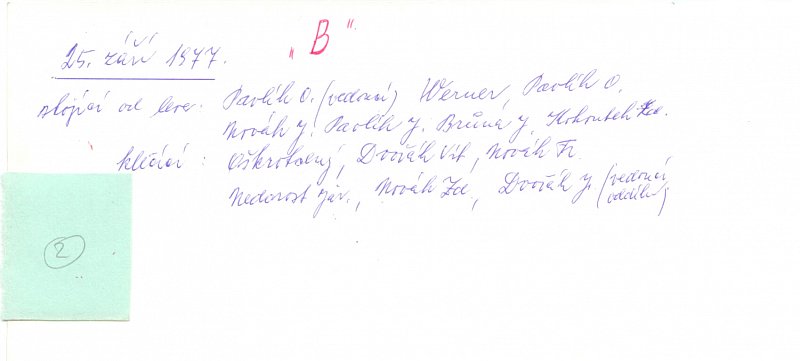 25. září 1977. "B"
stojící od leva: Pavlík O. (vedoucí) Werner, Pavlík O.
Novák J. Pavlík J. Brůna J. Kohoutek
klečící: Oškrobaný, Dvořák Vít, Novák Fr.
Nedorost Jar., Novák Zd., Dvořák J. (vedoucí
oddílu)
2